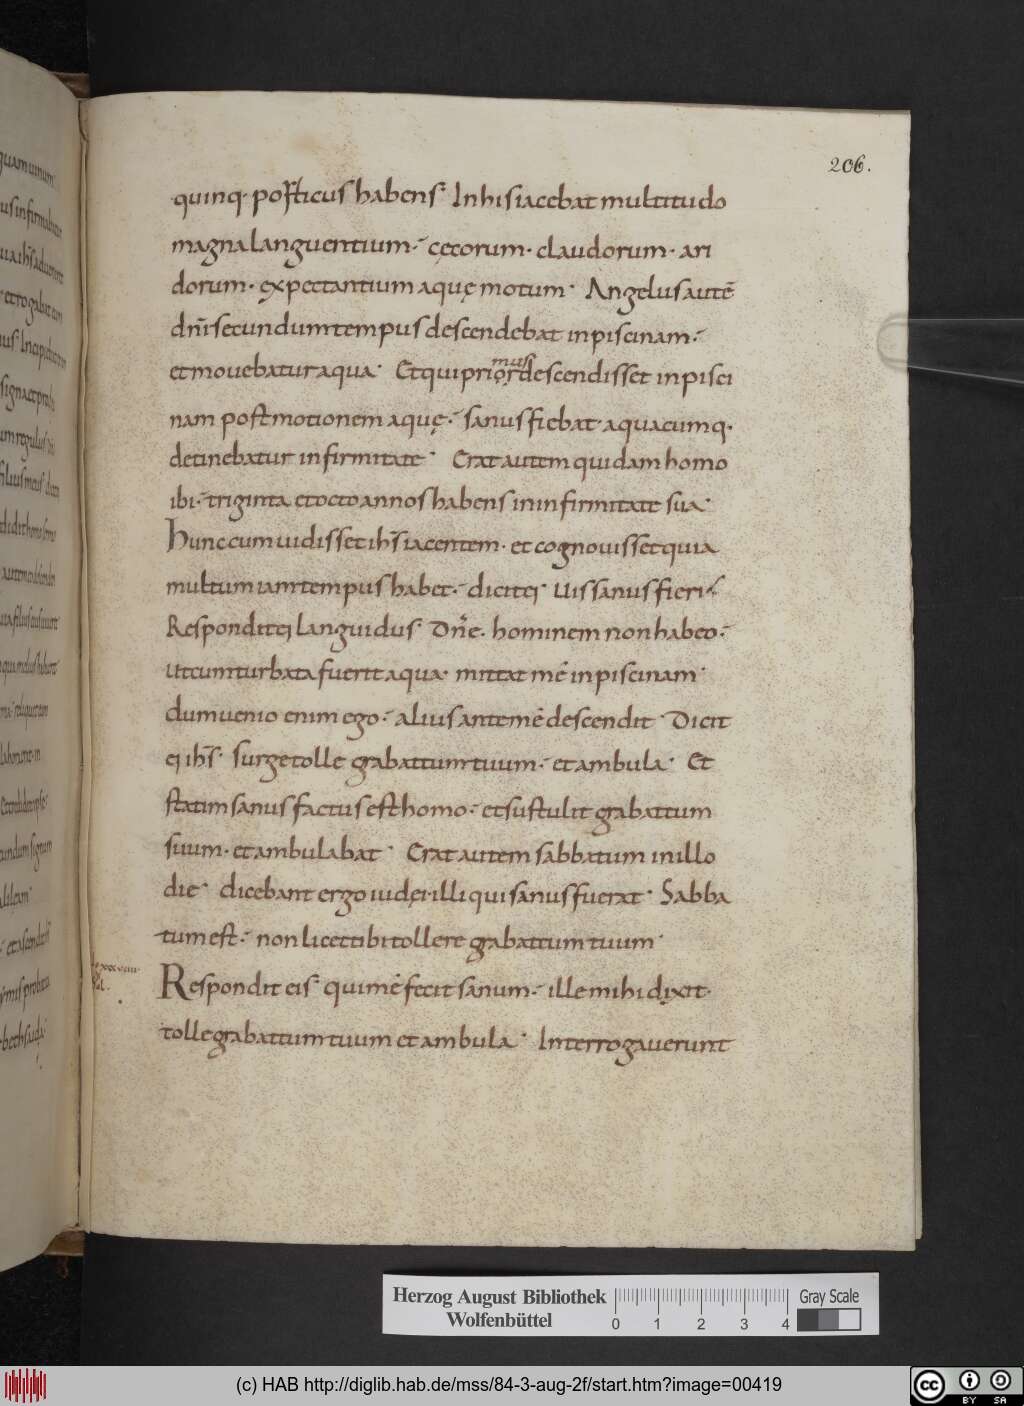 206.
quinq· porticus habens· In hi siacebat multitudo
magna languentium· cęcorum· claudorum· ari
dorum· ęxpectantium aquę motum· Angelus autē
dn̄i secundum tempus descendebat in piscinam·
et mouebatur aqua· Et qui prior descendisset in pisci
mus
nam post motionem aquę· sanus fiebat· aquacumq·
detinebatur infirmitate· Erat autem quidam homo
ibi· triginta et octo annos habens in infirmitate sua·
Hunc cum uidisset ihs̄ iacentem· et cognouisset quia
multum iam tempus habet· dicit ei· Uis sanus fieri·
Respondit ei languidus· Dn̄e· hominem non habeo·
ut cum turbata fuerit aqua· mittat me in piscinam·
dum uenio enim ego· alius ante me descendit· Dicit
ei ihs̄· surge tolle grabattum tuum· et ambula· Et
statim sanus factus est homo· et sustulit grabattum
suum· et ambulabat· Erat autem sabbatum in illo
die· dicebant ergo iudęi· illi qui sanus fuerat· Sabba
tum est· non licet tibi tollere grabattum tuum·
Respondit eis· qui me fecit sanum· ille mihi dixit·
tolle grabattum tuum et ambula· Interrogauerunt
Herzog August Bibliothek
Wolfenbüttel
0 1 2 3 4
Gray Scale
(c) HAB http://diglib.hab.de/mss/84-3-aug-2f/start.htm?image=00419
cc BY SA